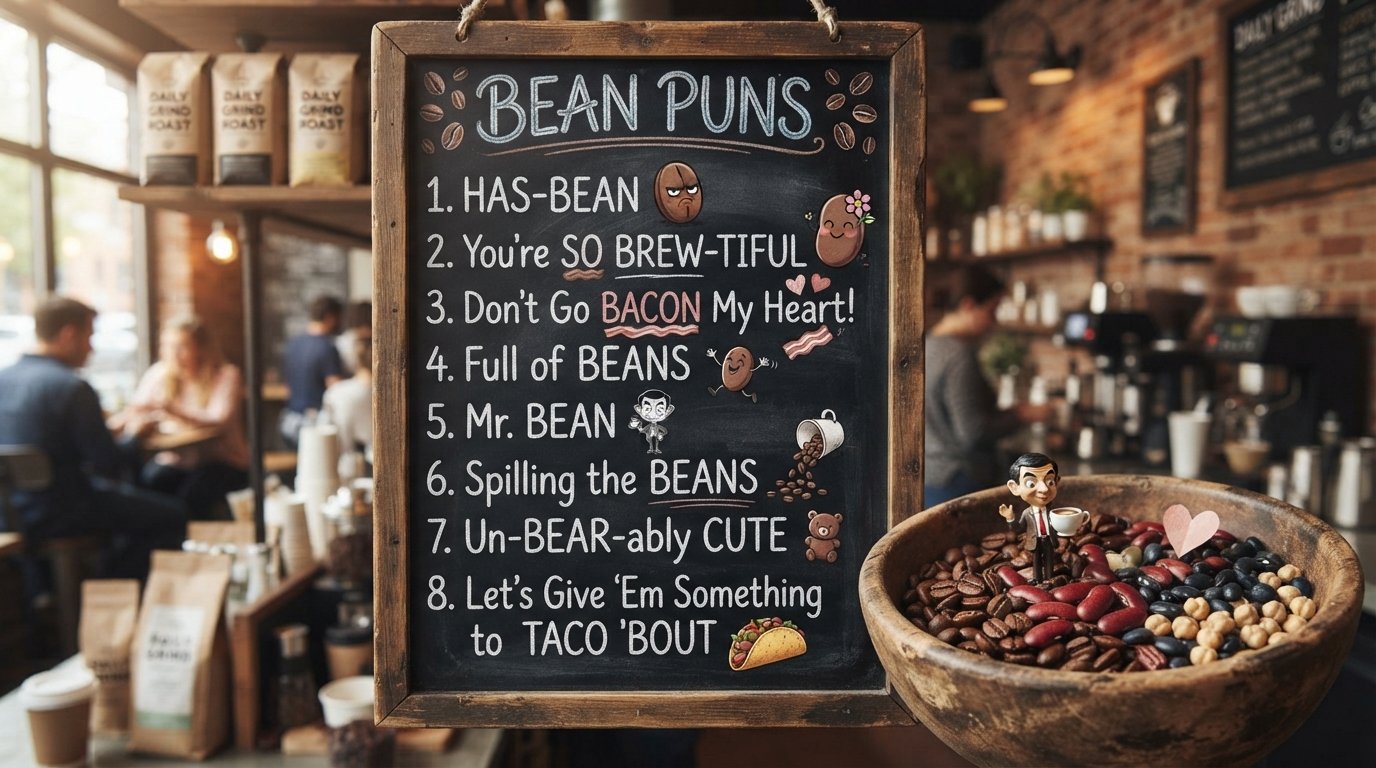 DAILY
GRIND
ROAST
DAILY
GRIND
ROAST
DAILY
GRIND
ROAST
BEAN PUNS
1. HAS-BEAN
2. You're SO BREW-TIFUL
3. Don't Go BACON My Heart!
4. Full of BEANS
5. Mr. BEAN
6. Spilling the BEANS
7. Un-BEAR-ably CUTE
8. Let's Give 'Em Something
to TACO 'BOUT
DAILY GRIND